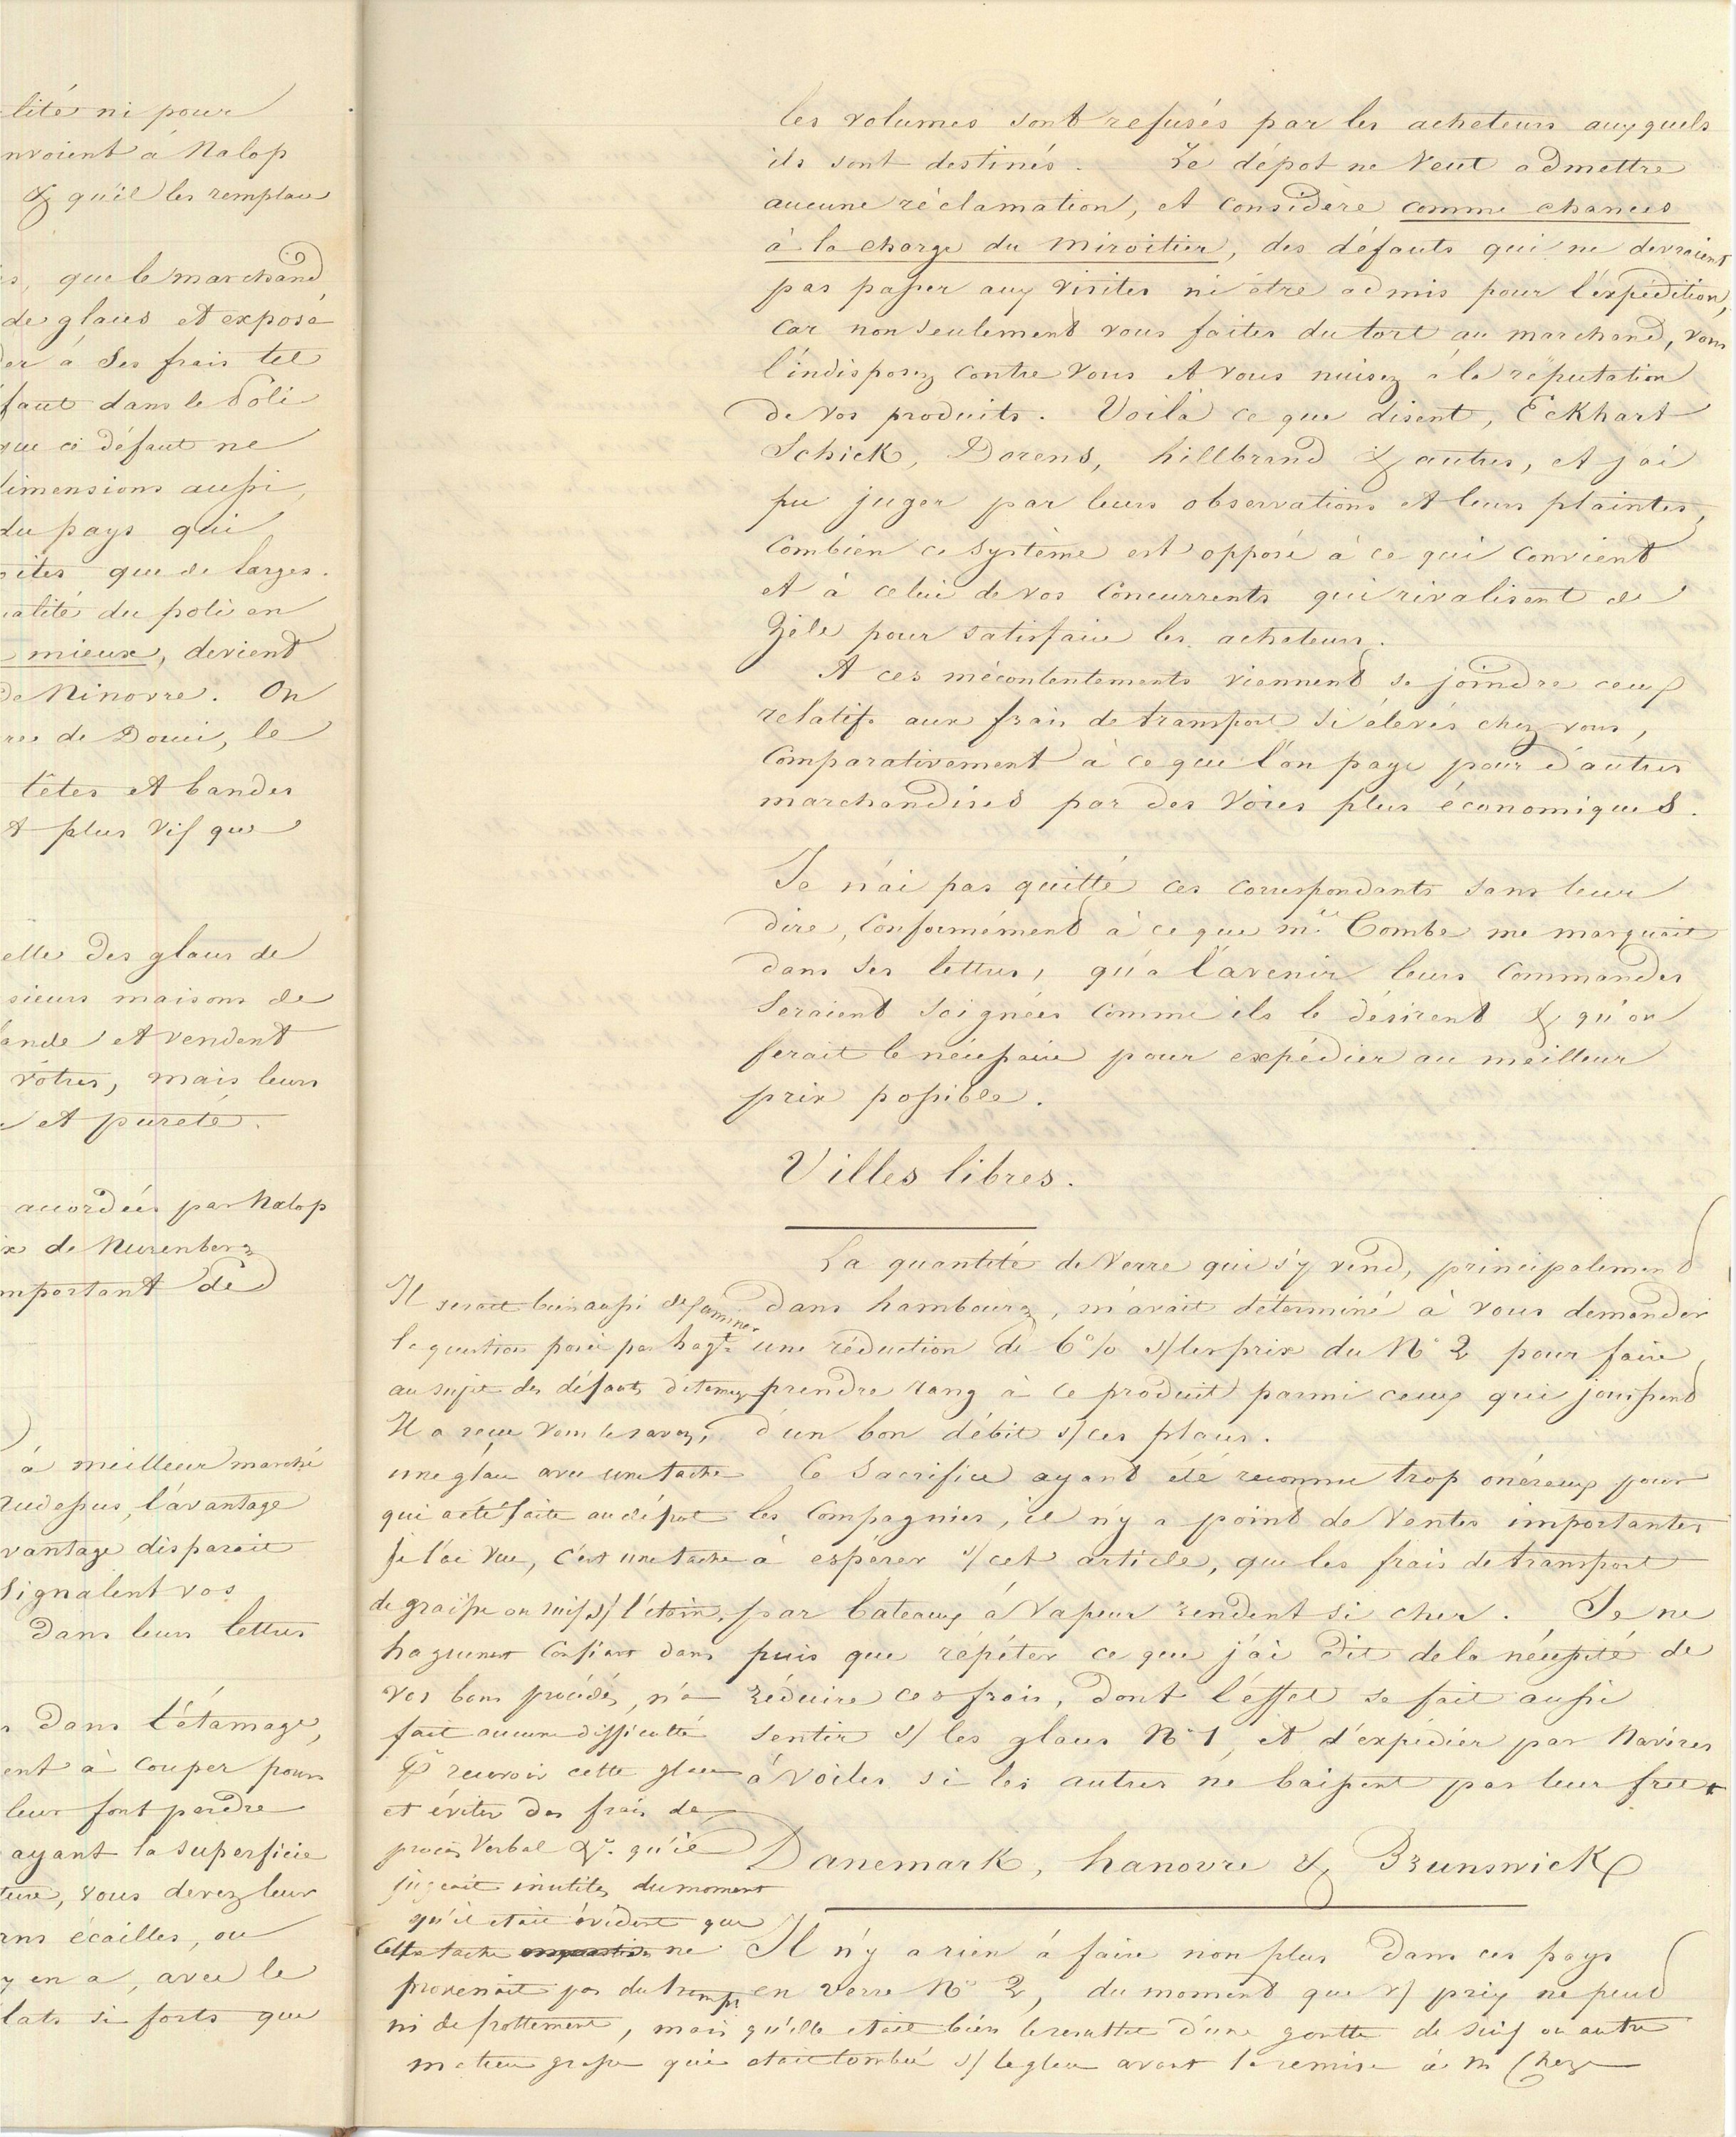 lité ni pour
nvoient à Nalop
& qu'il les remplace
que le marchand
de glaces et exposé
à ses frais tel
faut dans le Poli
que ce défaut ne
dimensions aussi
du pays qui
que de larges.
alité du poli en
mieux, devient
de Ninovre. On
de Doui, le
têtes et bandes
plus vif que
elle des glaces de
sieurs maisons de
ande et vendent
vôtres, mais leurs
et pureté.
accordées par Nalop
de Nurenberg
mportant de
à meilleur marché
l'avantage
vantage disparait
signalent vos
dans leurs lettres
dans l'étamage,
ent à couper pour
leur font perdre
ayant la superficie
vous devez leur
écailles, ou
y en a, avec le
lats si forts que
les volumes sont refusés par les acheteurs auxquels
ils sont destinés. Le dépot ne veut admettre
aucune réclamation, et considère comme chances
à la charge du miroitier, des défauts qui ne devraient
pas passer aux visites ni être admis pour l'expédition,
car non seulement vous faites du tort au marchand, vous
l'indisposez contre vous et vous nuisez à la réputation
de vos produits. Voilà ce que disent, Eckhart
Schick, Dorens, hillbrand & autres, et j'ai
pu juger par leurs observations et leurs plaintes,
Combien ce système est opposé à ce qui convient
et à celui de vos concurrents qui rivalisent de
Zèle pour satisfaire les acheteurs.
A ces mécontentements viennent se joindre ceux
relatifs aux frais de transport si élevés chez vous,
Comparativement à ce que l'on paye pour d'autres
marchandises par des voies plus économiques.
Je n'ai pas quitté ces correspondants sans leur
dire, Conformément à ce que mr. Combe me marquait
dans ses lettres, qu'a l'avenir leurs commandes
seraient soignées comme ils le désirent & qu'on
ferait le nécessaire pour expédier au meilleur
prix possible.
Villes libres.
La quantité de Verre qui s'y vend, principalement
dans hambourg, m'avait déterminé à vous demander
une réduction de 6% s/ les prix du N° 2 pour faire
prendre rang à ce produit parmi ceux qui jouissent
d'un bon débit s/ ces places.
Ce sacrifice ayant été reconnu trop onéreux pour
les Compagnies, il n'y a point de ventes importantes
à espérer s/ cet article, que les frais de transport
par bateaux à Vapeur rendent si cher. Je ne
puis que répéter ce que j'ai dit de la nécessité de
réduire ces frais, dont l'effet se fait aussi
sentir s/ les glaces N° 1, et d'expédier par Navires
à voiles si les autres ne baissent pas leur fret
Il serait bien aussi d'examiner
la question posée par hagt
au sujet des défauts d'étamage
Il a reçu vous le savez,
une glace avec une tache
qui a été faite au dépot
je l'ai vue, c'est une tache
de graisse ou suif s/ l'étain,
haguenet confiant dans
vos bons procédés, n'a
fait aucune difficulté
pr recevoir cette glace
et éviter des frais de
procès Verbal &a. qu'il
jugeait inutiles du moment
qu'il etait évident que
Cette tache ne
provenait pas du tems
ni de frottement, mais qu'elle etait bien le resultat d'une goutte de suif ou autre
matiere grasse qui etait tombée s/ la glace avant la remise à m
Danemark, hanovre & Brunswick
Il n'y a rien à faire non plus dans ces pays
en verre N° 2, du moment que s/ prix ne peut